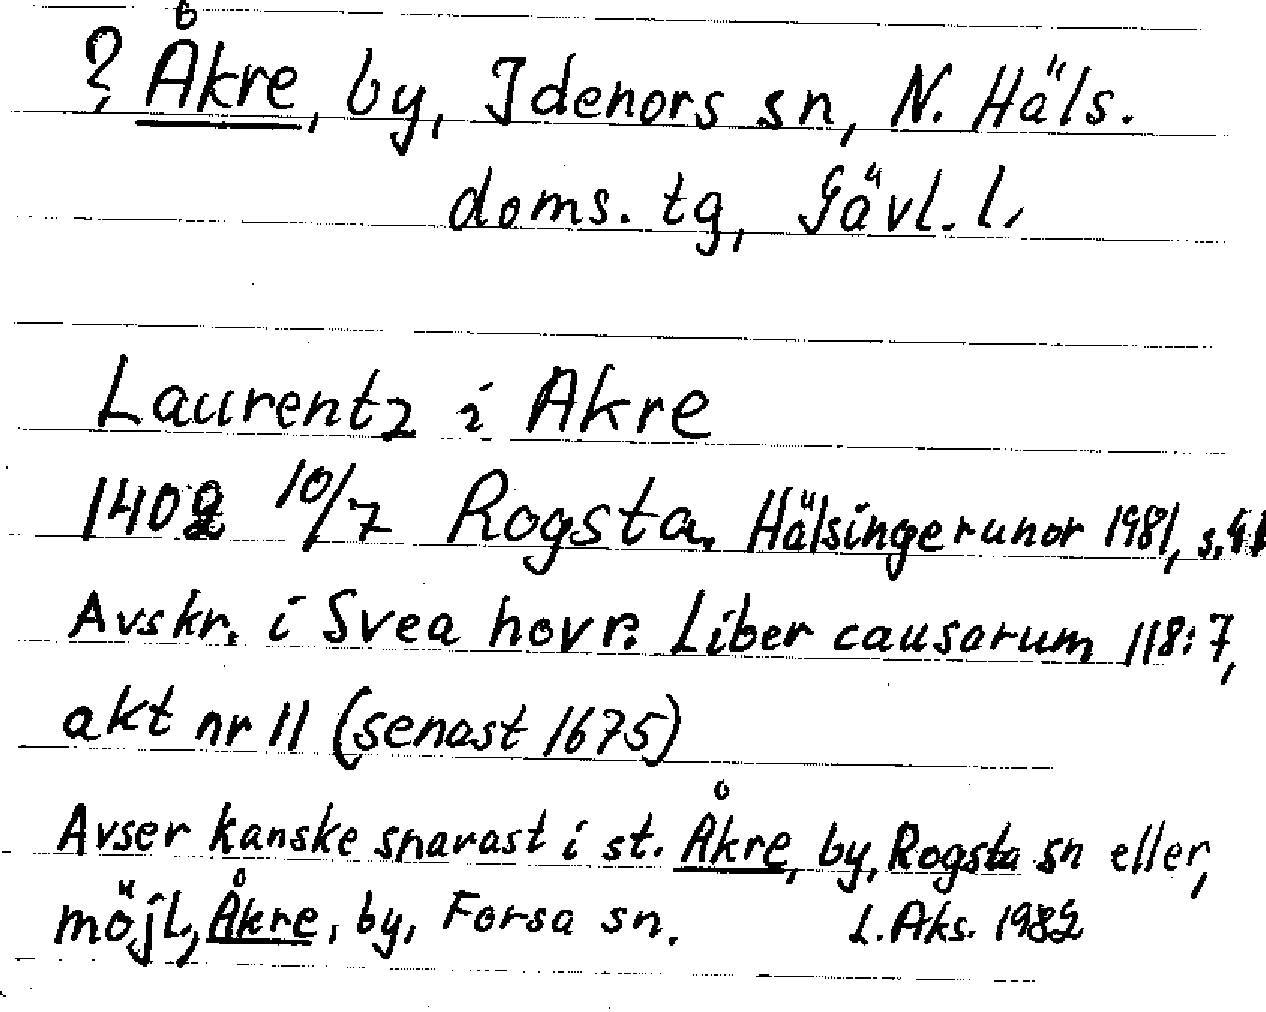 ? Åkre, by, Idenors sn, N. Häls.
doms. tg, Gävl. l.
Laurentz i Akre
1402 10/7 Rogsta. Hälsingerunor 1981, s.
Avskr. i Svea hovr. Liber causarum 118:7,
akt nr 11 (senast 1675)
Avser kanske snarast i st. Åkre, by, Rogsta sn eller,
möjl, Åkre, by, Forsa sn.
L. Aks. 1982